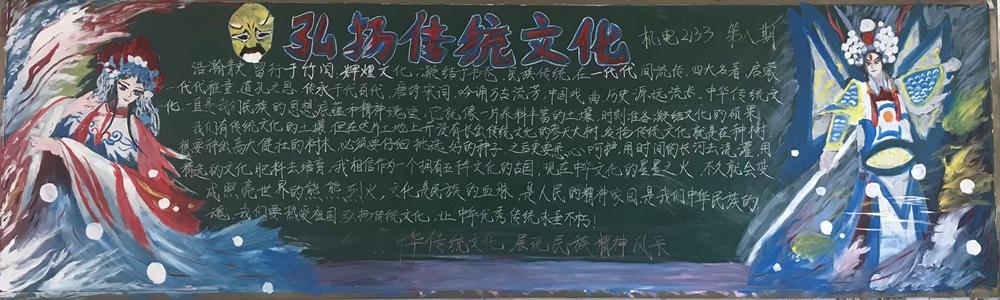 弘扬传统文化
机电2133 第八期
浩瀚 留行于竹间,辉煌文化,凝结于书卷,民族传统,在一代代间流传,四大名著,启蒙
一代代稚童,道孔之思,传承千代百代,唐诗宋词,吟诵万古流芳,中国戏曲历史源远流长,中华传统文
化一直是我们民族的思想底蕴和精神瑰宝,它就像一片养料丰富的土壤,时刻准备凝结文化的硕果。
我们有传统文化的土壤,但在这片土地上并没有长出传统文化的参天大树,弘扬传统文化就是在种树
想要种就高大健壮的树木,必须要仔细挑选好的种子,之后更要悉心呵护,用时间的长河去浇灌,用
优秀的文化肥料去培育,我相信作为一个拥有五千年文化的古国,现在中华文化的星星之火,不久就会变
成照亮世界的熊熊烈火,文化是民族的血脉,是人民的精神家园,是我们中华民族的
魂,我们要热爱祖国,弘扬传统文化,让中华优秀传统永垂不朽!
中华传统文化 展现民族精神风采